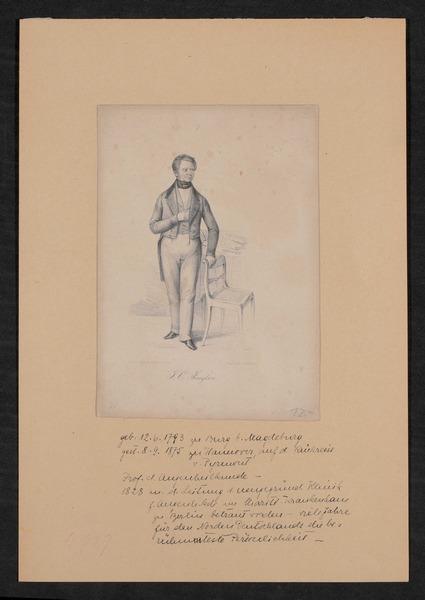 J. C. Jüngken
geb. 12.6.1793 zu Burg b. Magdeburg
gest. 8.9.1875 zu Hannover, auf d.
v. Pyrmont
Prof. d. Augenheilkunde –
1828 m. d. Leitung d. neugegründ. Klinik
f. im Charité Krankenhaus
zu Berlin betraut worden – viele Jahre
für den Norden Deutschlands die be-
rühmteste Persönlichkeit –